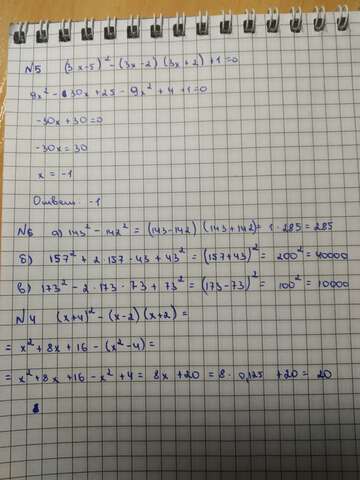 N5 (3x-5)² - (3x-2) (3x+2) +1=0
9x² - 30x + 25 - 9x² + 4 +1=0
-30x + 30 = 0
-30x = 30
x = -1
Ответ -1
N6 а) 143² - 142² = (143-142) (143+142)= 1·285 = 285
б) 157² + 2·157·43 + 43² = (157+43)² = 200² = 40000
в) 173² - 2·173·73 + 73² = (173-73)² = 100² = 10000
N4 (x+4)² - (x-2)(x+2) =
= x² + 8x + 16 - (x²-4) =
= x² + 8x + 16 - x² + 4 = 8x + 20 = 8· 0,125 + 20 = 20